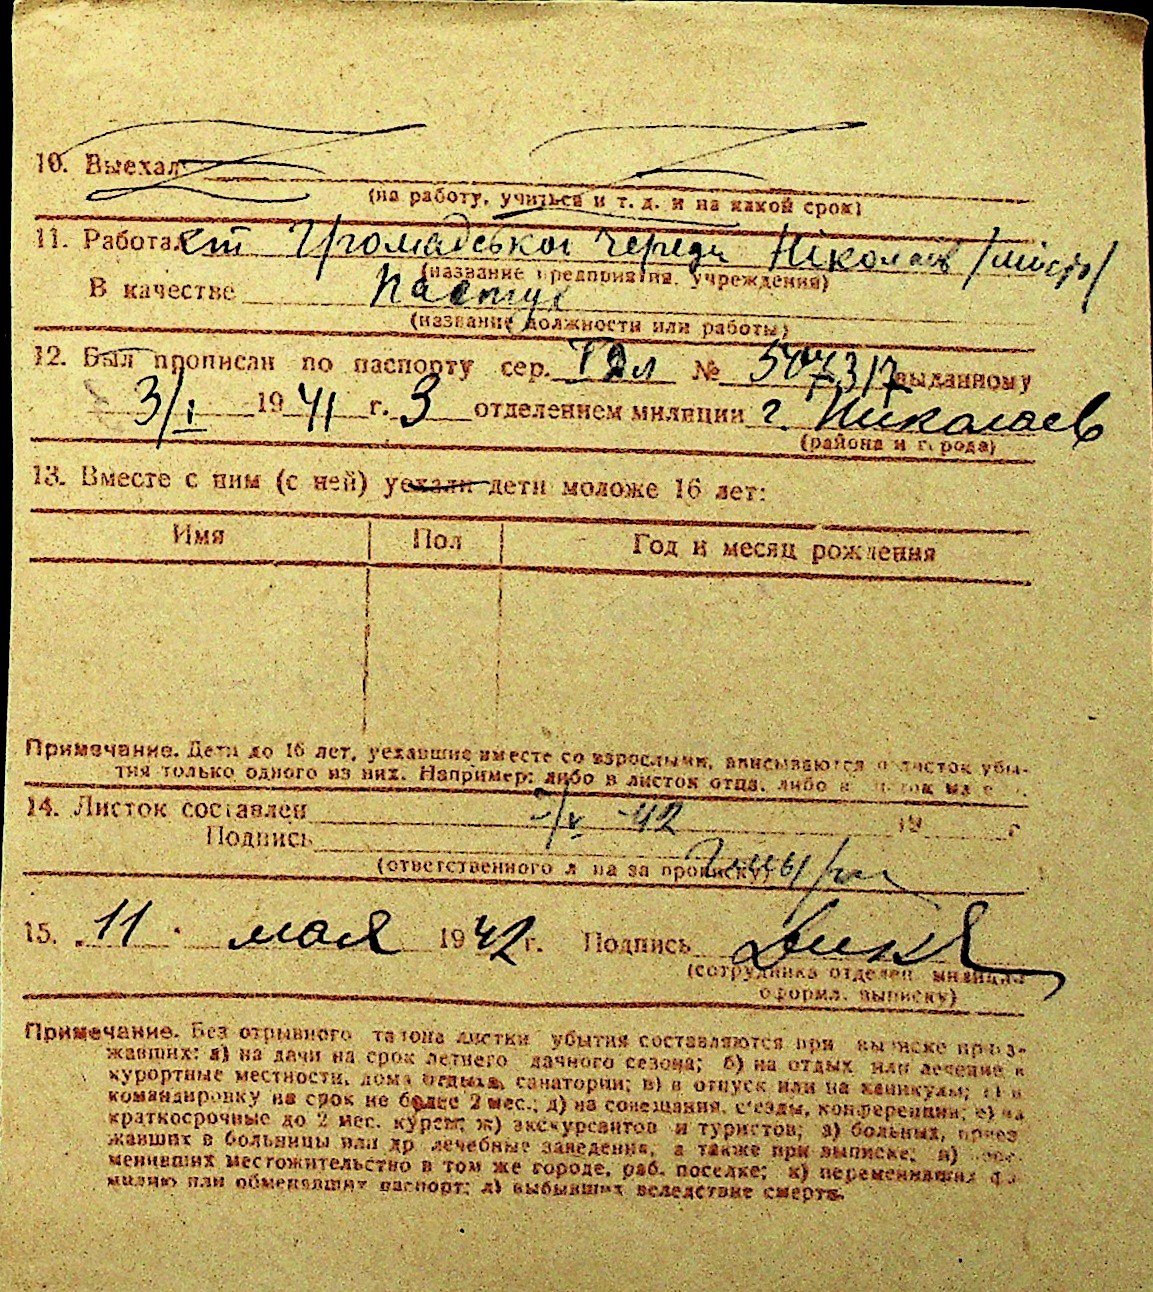 10. Выехал
(на работу, учиться и т. д. и на какой срок)
11. Работал ст Громадської череди Ніколаїв /місто/
(название предприятия, учреждения)
В качестве Пастух
(название должности или работы)
12. Был прописан по паспорту сер. № выданному
3/I 1941 г. 3 отделением милиции г. Николаев
(района и города)
13. Вместе с ним (с ней) уехали дети моложе 16 лет:
Имя Пол Год и месяц рождения
Примечание. Дети до 16 лет, уехавшие вместе со взрослыми, вписываются в листок убы-
тия только одного из них. Например: либо в листок отца, либо в
14. Листок составлен /V 42 19 г
Подпись
(ответственного л на за прописку)
15. 11 мая 1942 г. Подпись
(сотрудника отделен милиции
оформл. выписку)
Примечание. Без отрывного талона листки убытия составляются при выписке приез-
жавших: а) на дачи на срок летнего дачного сезона; б) на отдых или лечение в
курортные местности, дома отдыха, санатории; в) в отпуск или на каникулы; г) в
командировку на срок не более 2 мес.; д) на совещания, съезды, конференции; е) на
краткосрочные до 2 мес. курсы; ж) экскурсантов и туристов; з) больных, приез
жавших в больницы или др лечебные заведения, а также при выписке: и) пере-
менивших местожительство в том же городе, раб. поселке; к) переменивших фа
милию или обменявших паспорт; л) выбывших вследствие смерти.